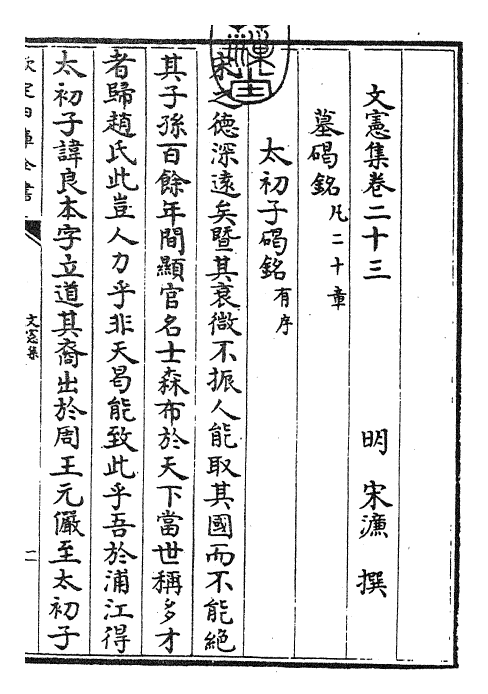 文憲集卷二十三
明 宋濂 撰
墓碣銘凡二十章
太初子碣銘有序
宋之德深遠矣暨其衰微不振人能取其國而不能絕
其子孫百餘年間顯官名士森布於天下當世稱多才
者歸趙氏此豈人力乎非天曷能致此乎吾於浦江得
太初子諱良本字立道其裔出於周王元儼至太初子
文憲集
一